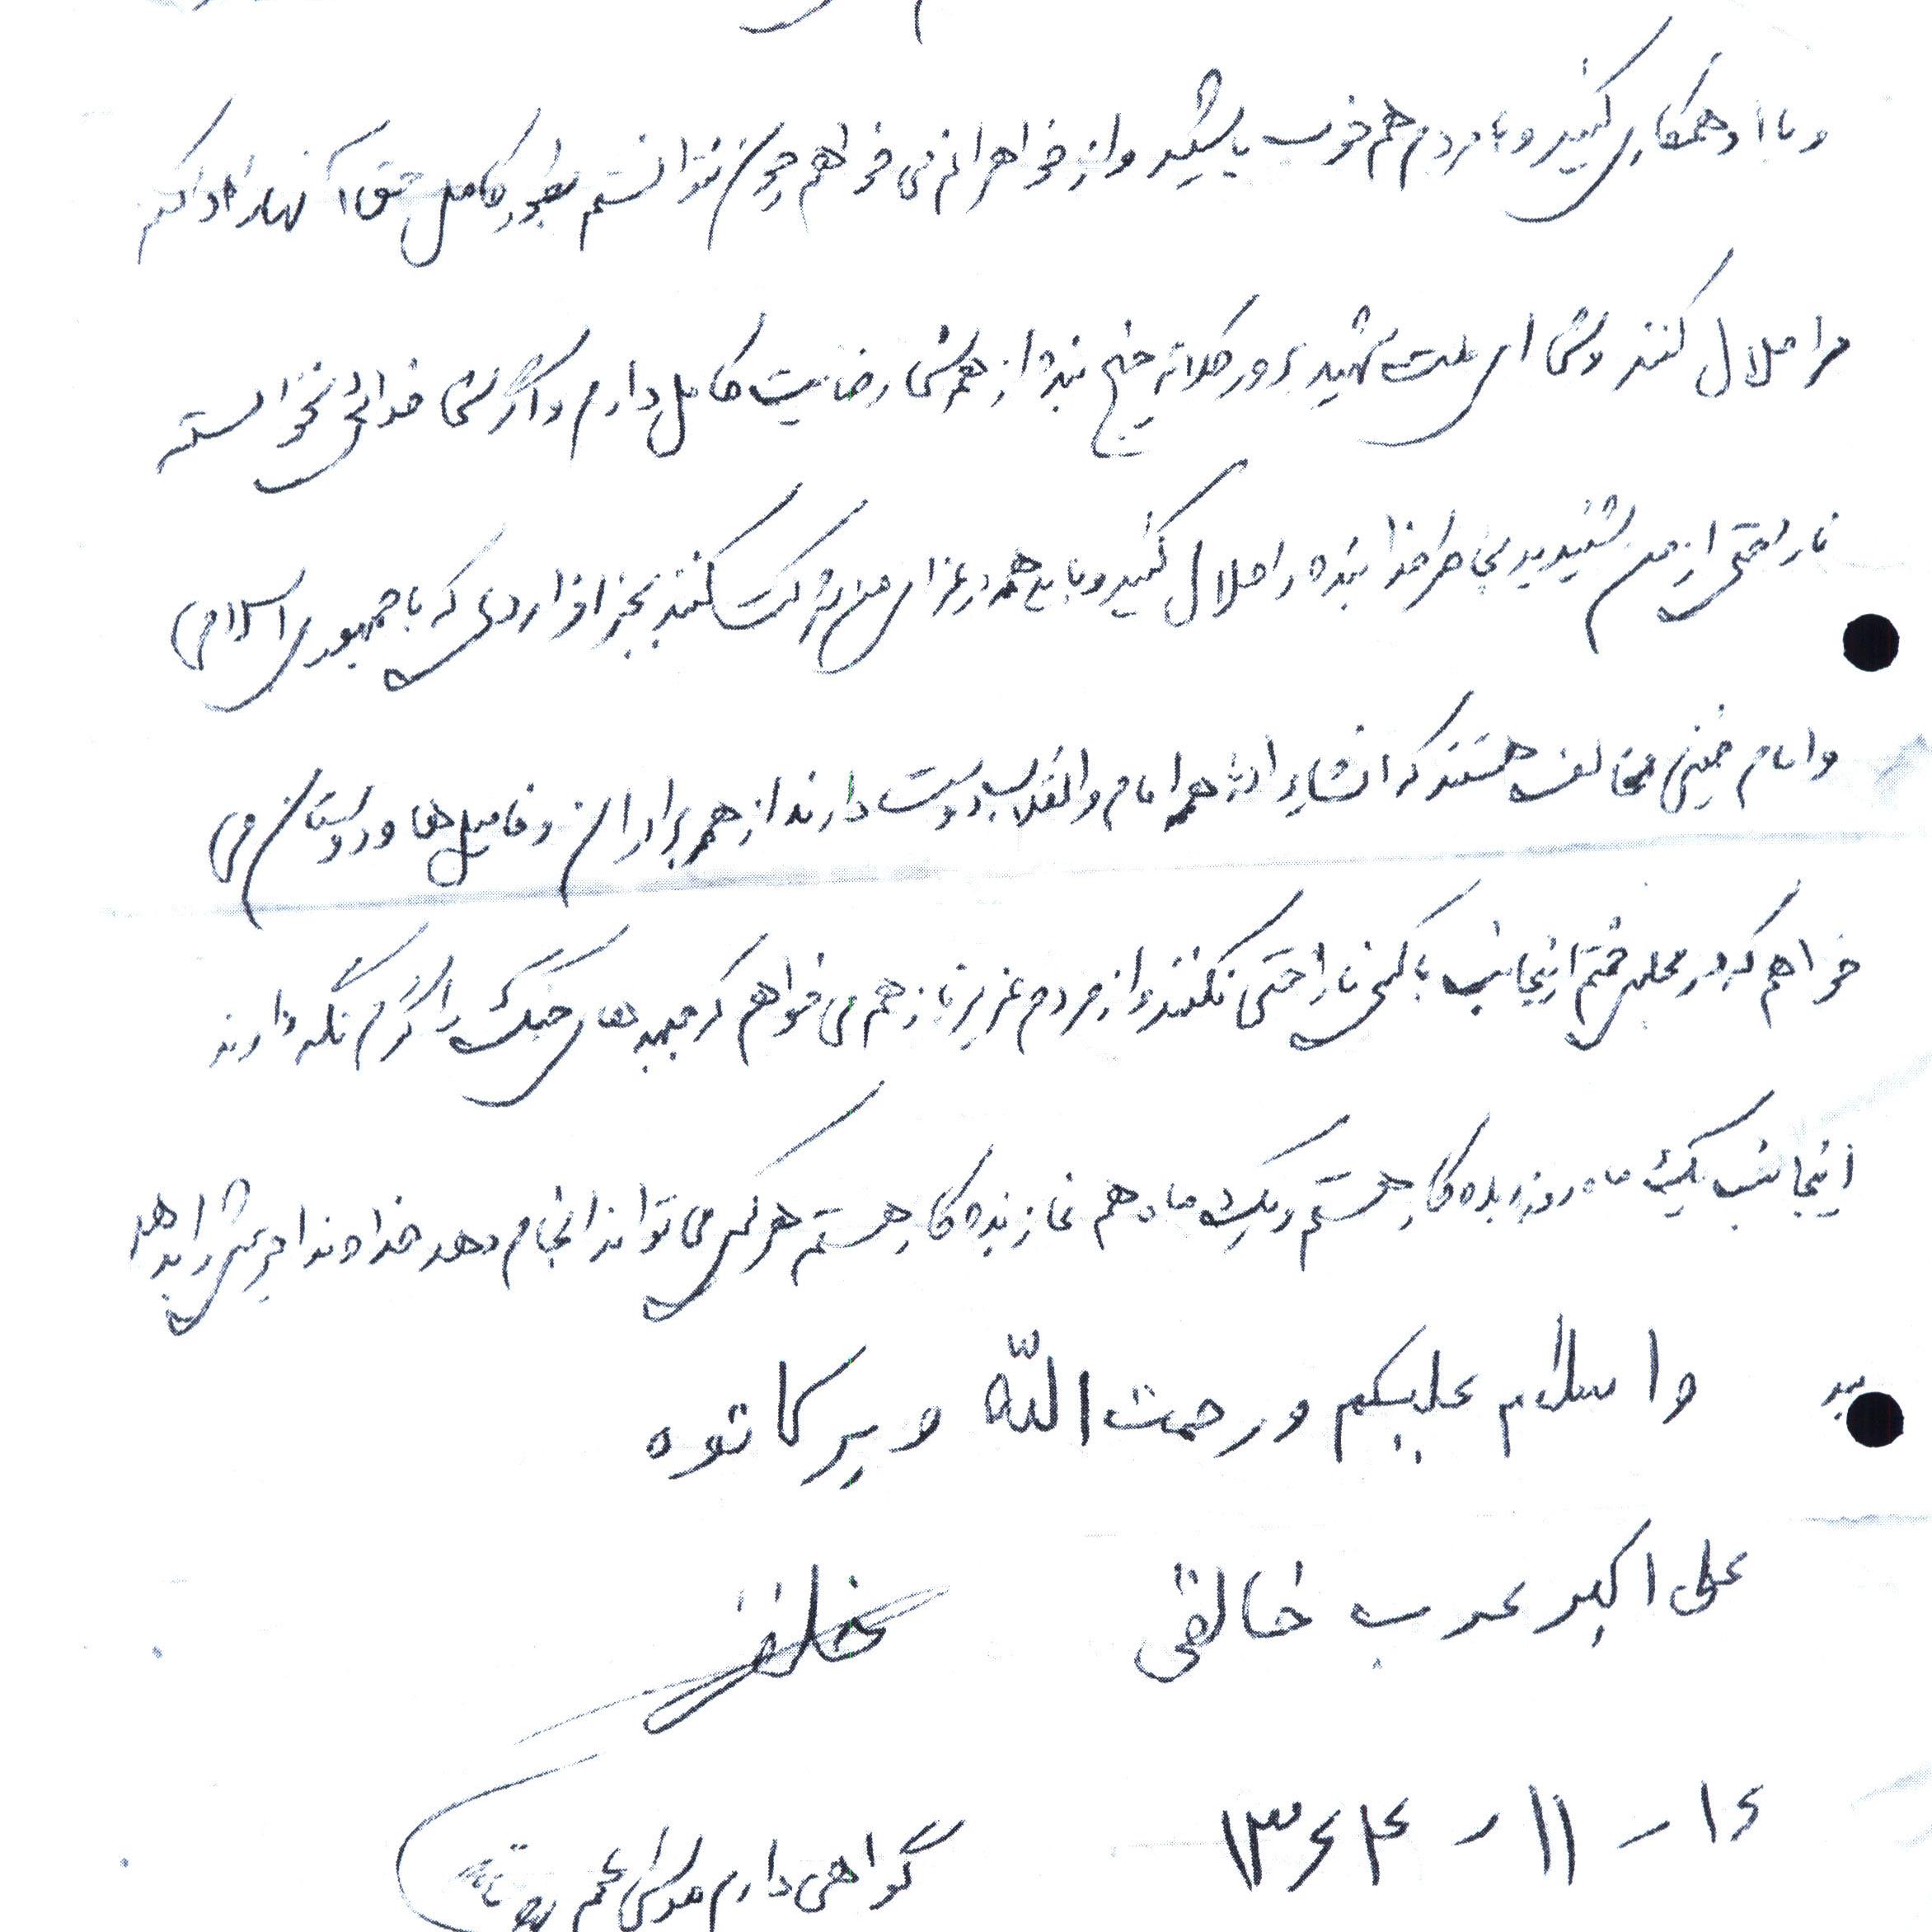 و با او همکاری کنید و با مردم هم خوب باشید و از خواهرانم می خواهم چون نتوانستم بطور کامل حق آنها را ادا کنم
مرا حلال کنند و شما ای ملت شهید پرور کلاته خیج بنده از همه شما رضایت کامل دارم و اگر شما خدائی نخواسته
ناراحتی از من شنیدید بخاطر خدا بنده را حلال کنید و باید همه در عزای من شرکت کنند بجز افرادی که با جمهوری اسلامی
و امام خمینی مخالف هستند که انشاء الله همه امام و انقلاب دوست دارند از همه برادران و فامیل ها و دوستان می
خواهم که در مجلس ختم اینجانب با کسی ناراحتی نکنند و از مردم عزیز باز هم می خواهم که جبهه های جنگ را گرم نگه دارند
اینجانب یک ماه روزه بدهکار هستم و یک ماه هم نماز بدهکار هستم هر کس می تواند انجام دهد خداوند اجرش را بدهد
وا سلام علیکم و رحمت الله و برکاتوه
علی اکبر عرب خالقی
۱۶ - ۱۱ - ۱۳۶۴
گواهی دارم